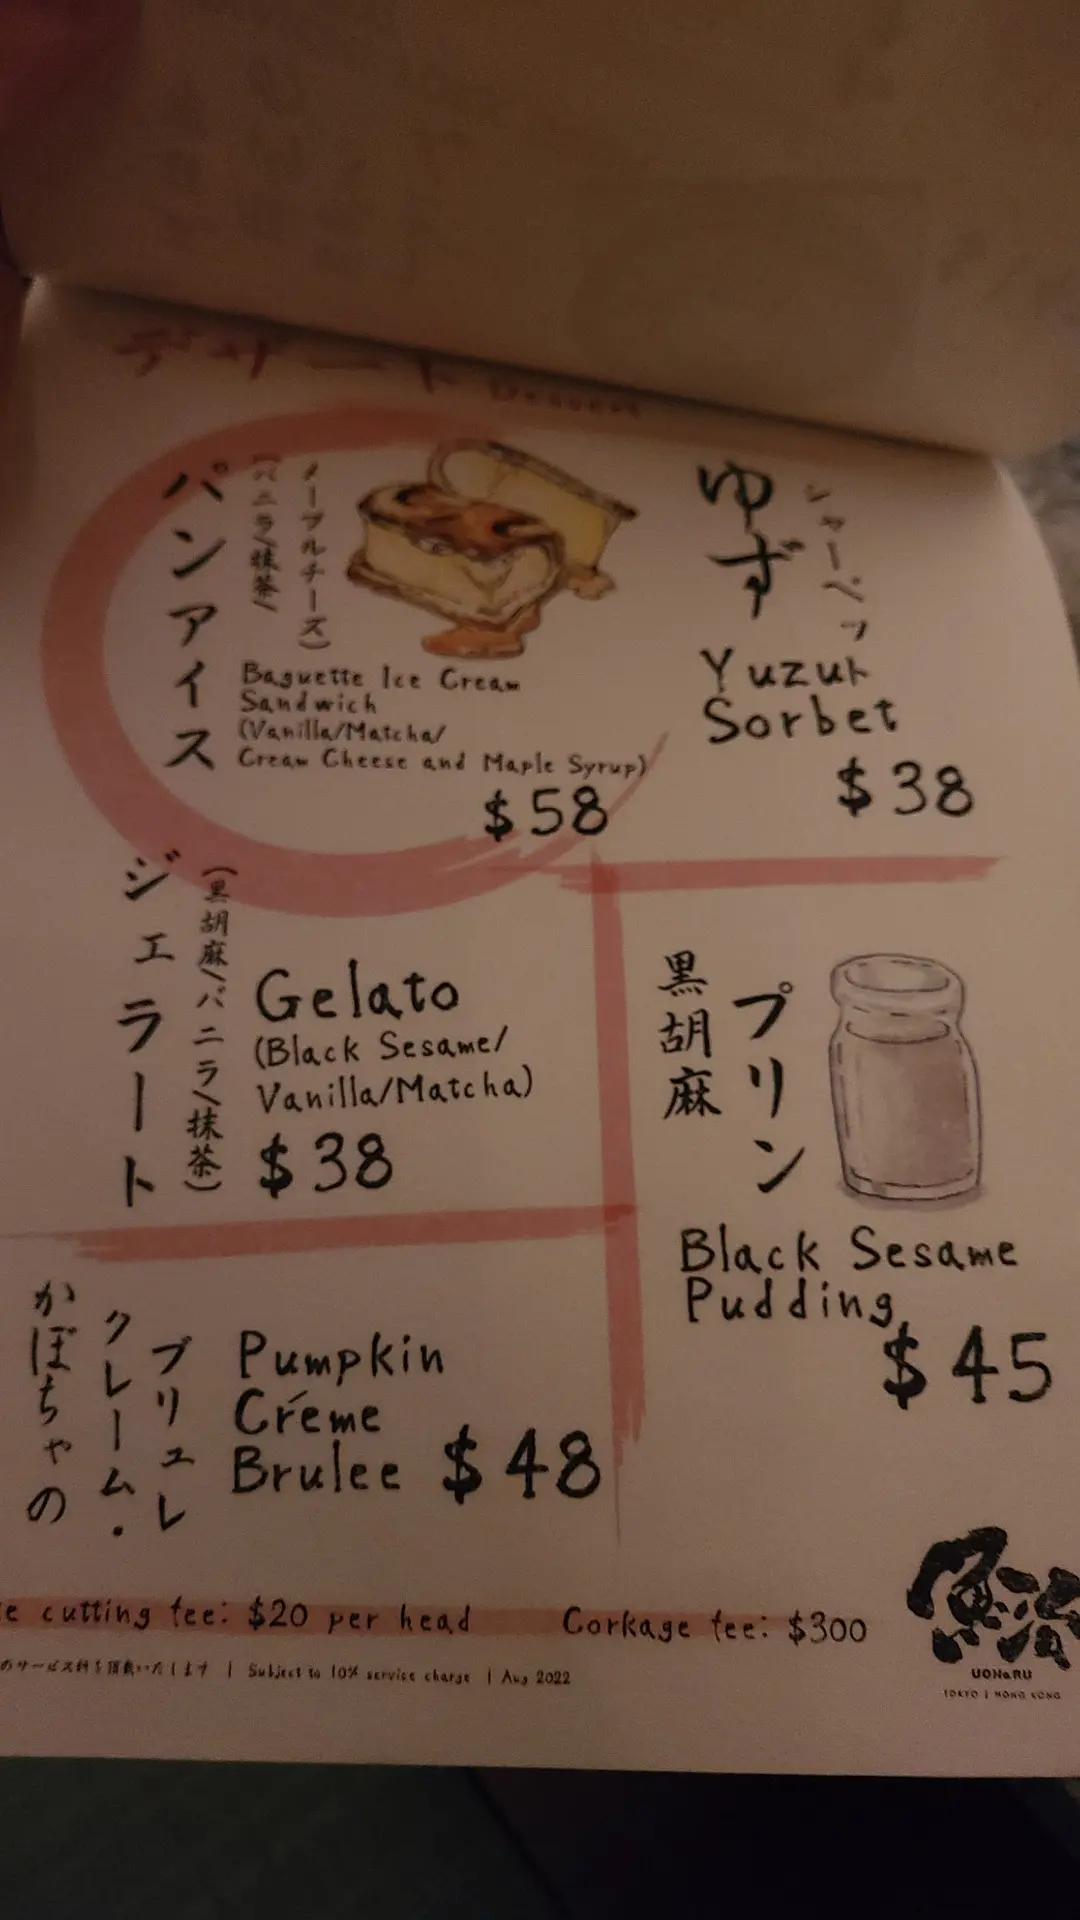 デザート Dessert
パンアイス
(バニラ/抹茶/
メープルチーズ)
Baguette Ice Cream
Sandwich
(Vanilla/Matcha/
Cream Cheese and Maple Syrup)
$58
ゆず
シャーベット
Yuzu
Sorbet
$38
ジェラート
(黒胡麻/バニラ/抹茶)
Gelato
(Black Sesame/
Vanilla/Matcha)
$38
黒胡麻
プリン
Black Sesame
Pudding
$45
かぼちゃの
クレーム・
ブリュレ
Pumpkin
Créme
Brulee $48
cutting fee: $20 per head
Corkage fee: $300
のサービス料を頂戴いたします | Subject to 10% service charge | Aug 2022
魚治
UONaRU
TOKYO | HONG KONG